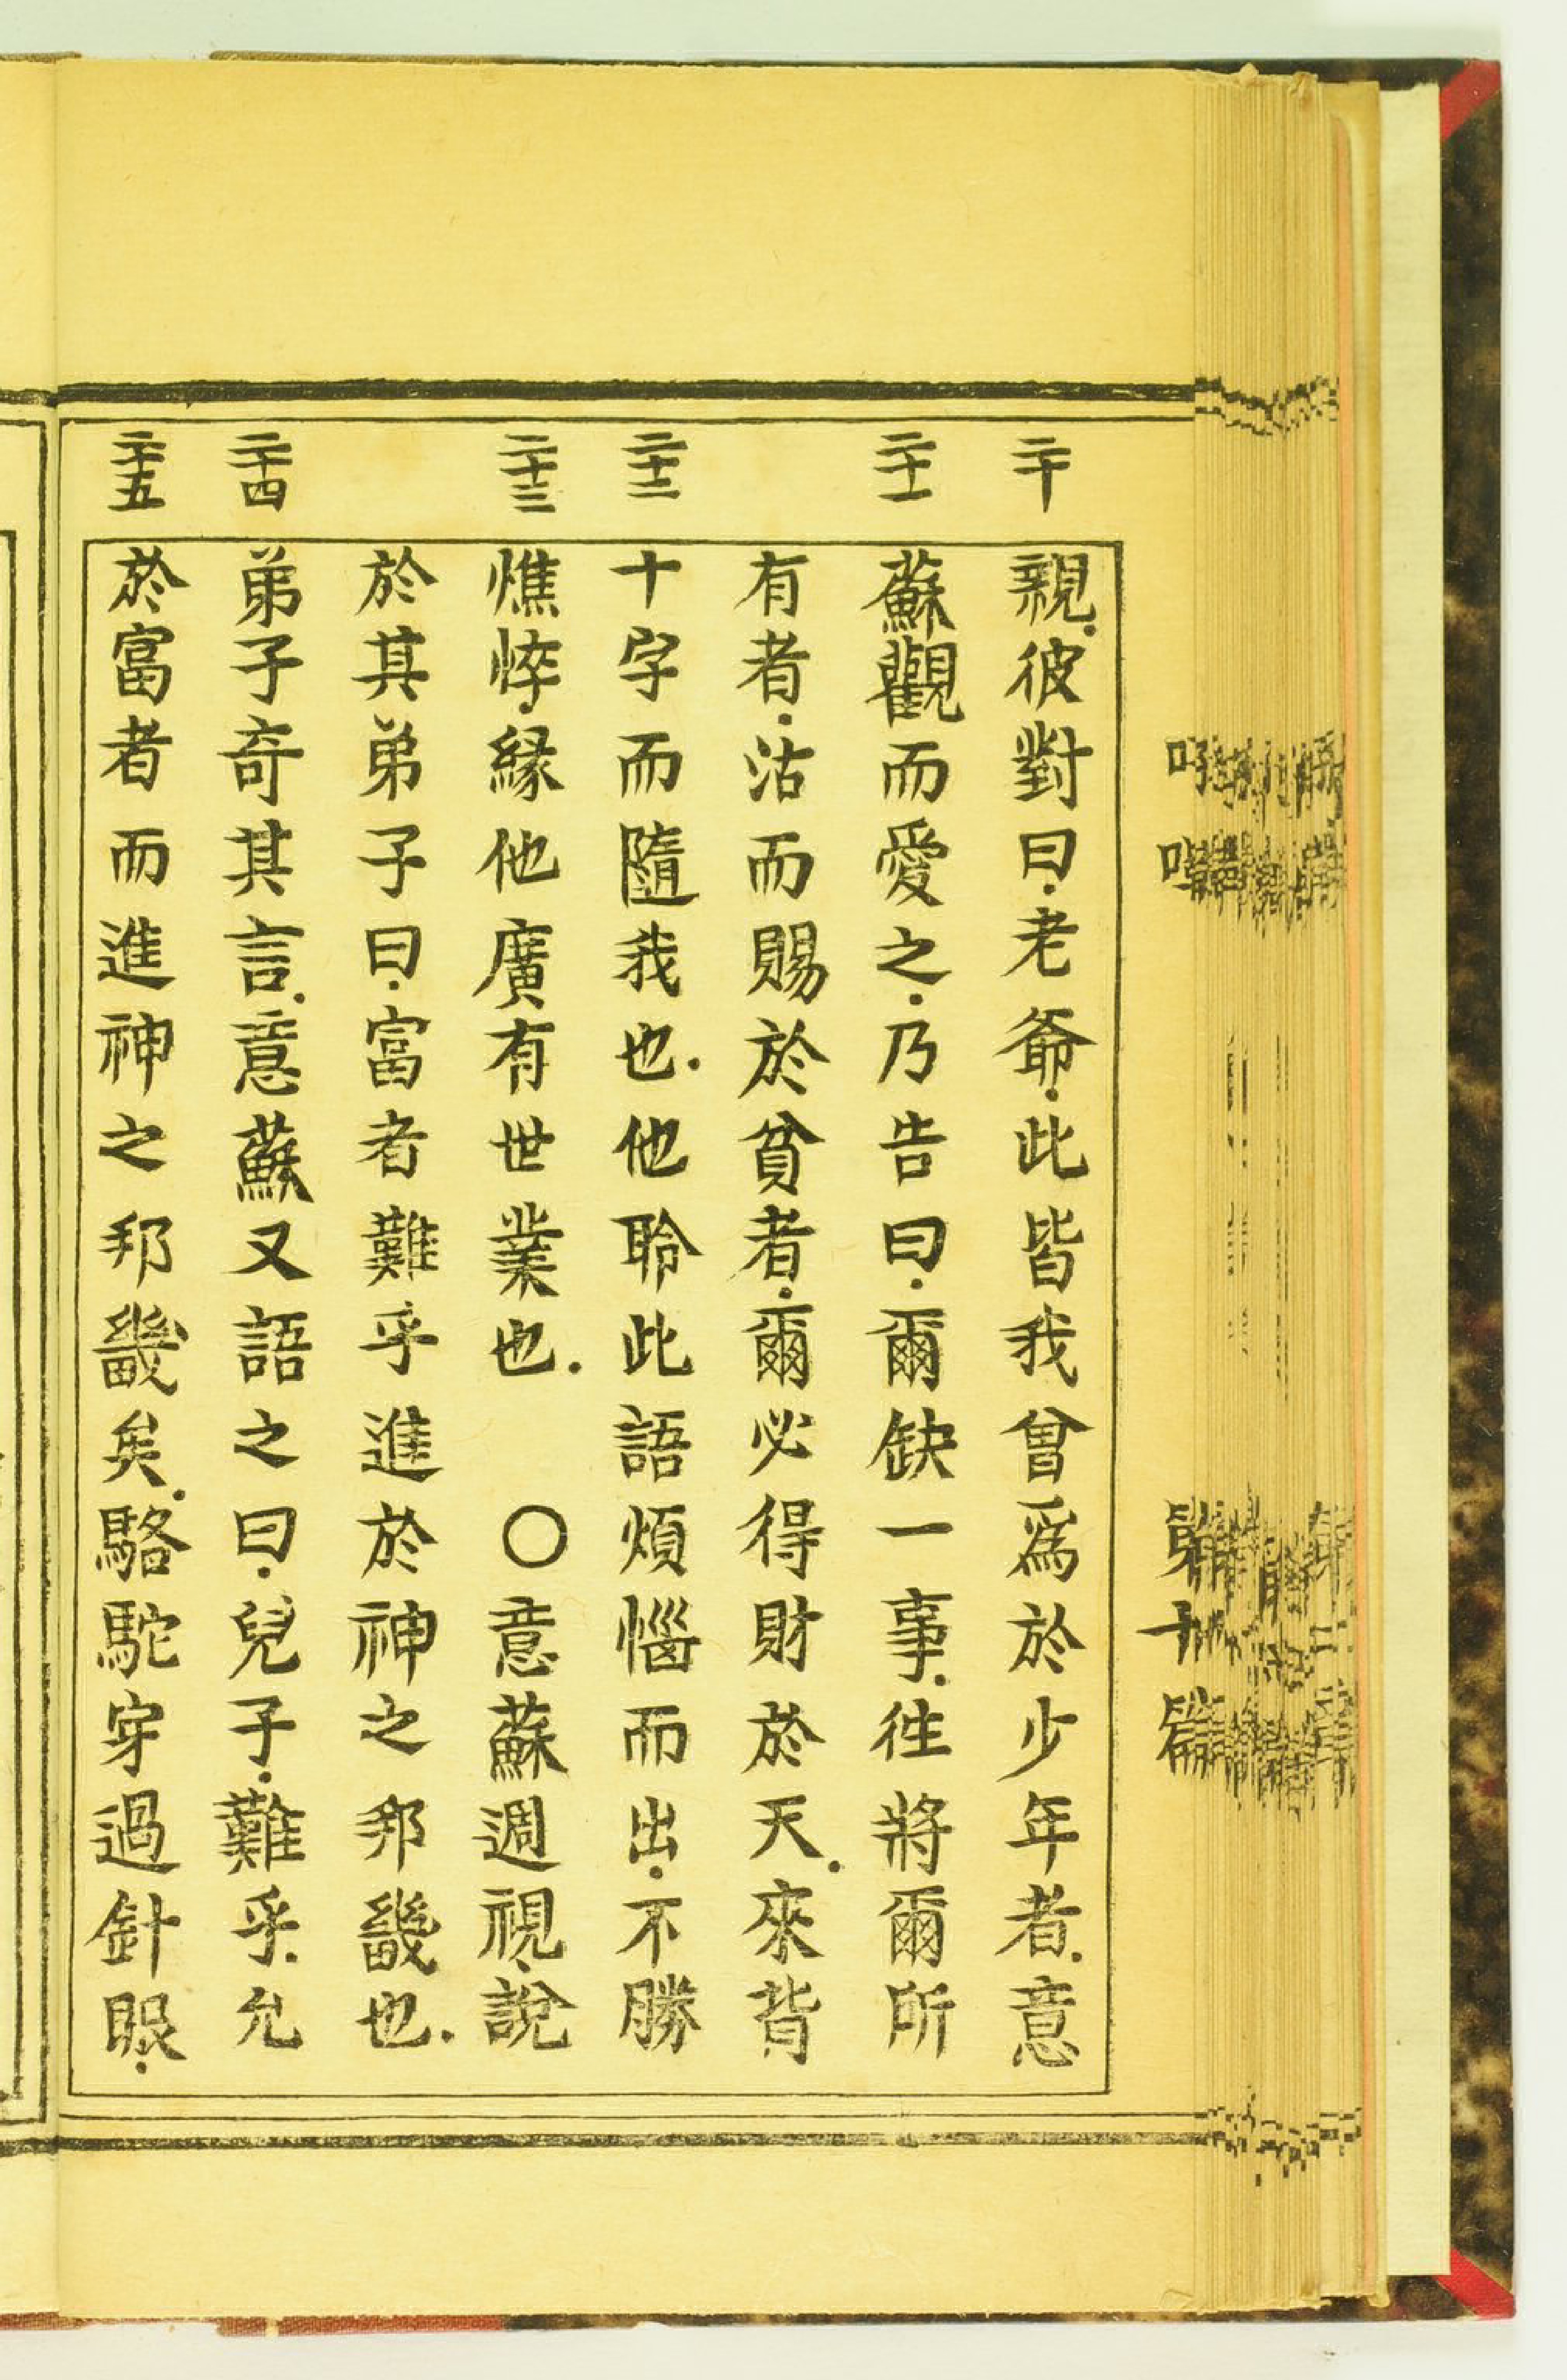 二十
親．彼對曰．老爺．此皆我曾爲於少年者．意
二十一
蘇觀而愛之．乃告曰．爾缺一事．往將爾所
有者．沽而賜於貧者．爾必得財於天．來背
二十二
十字而隨我也．他聆此語煩惱而出．不勝
二十三
憔悴．緣他廣有世業也．　〇意蘇週視．說
於其弟子曰．富者難乎進於神之邦畿也．
二十四
弟子奇其言．意蘇又語之曰．兒子．難乎．允
二十五
於富者而進神之邦畿矣．駱駝穿過針眼．
第十篇